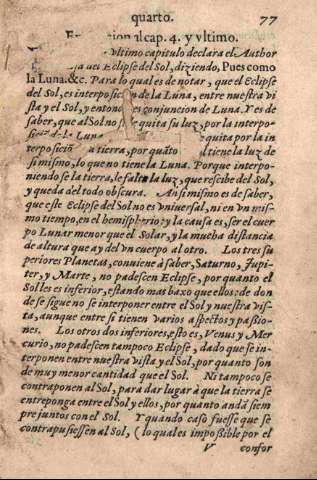 quarto. 77
al cap. 4. y vltimo.
vltimo capitulo declara el Author
del Eclipse del Sol, diziendo, Pues como
la Luna.&c. Para lo qual es de notar, que el Eclipse
del Sol, es interposicion de la Luna, entre nuestra vi
sta y el Sol, y entonces conjuncion de Luna. Y es de
saber, que al Sol no se quita su luz, por la interpo-
Luna quita por la in
terposiciō tierra, por quāto tiene la luz de
si mismo, lo que no tiene la Luna. Porque interpo-
niendo se la tierra, le falta la luz, que rescibe del Sol,
y queda del todo obscura. Ansi mismo es de saber,
que este Eclipse del Sol no es vniuersal, ni en vn mis-
mo tiempo, en el hemispherio: y la causa es, ser el cuer
po Lunar menor que el Solar, y la mucha distancia
de altura que ay del vn cuerpo al otro. Los tres su
periores Planetas, conuiene à saber, Saturno, Iupi-
ter, y Marte, no padescen Eclipse, por quanto el
Sol les es inferior, estando mas baxo que ellos: de don
de se sigue no se interponer entre el Sol y nuestra vis-
ta, aunque entre si tienen varios aspectos y passio-
nes. Los otros dos inferiores, esto es, Venus y Mer
curio, no padescen tampoco Eclipse, dado que se in-
terponen entre nuestra vista y el Sol, por quanto son
de muy menor cantidad que el Sol. Ni tampoco se
contraponen al Sol, para dar lugar à que la tierra se
entreponga entre el Sol y ellos, por quanto andā siem
pre juntos con el Sol. Y quando caso fuesse que se
contrapusiessen al Sol, (lo qual es impossible por el
V confor